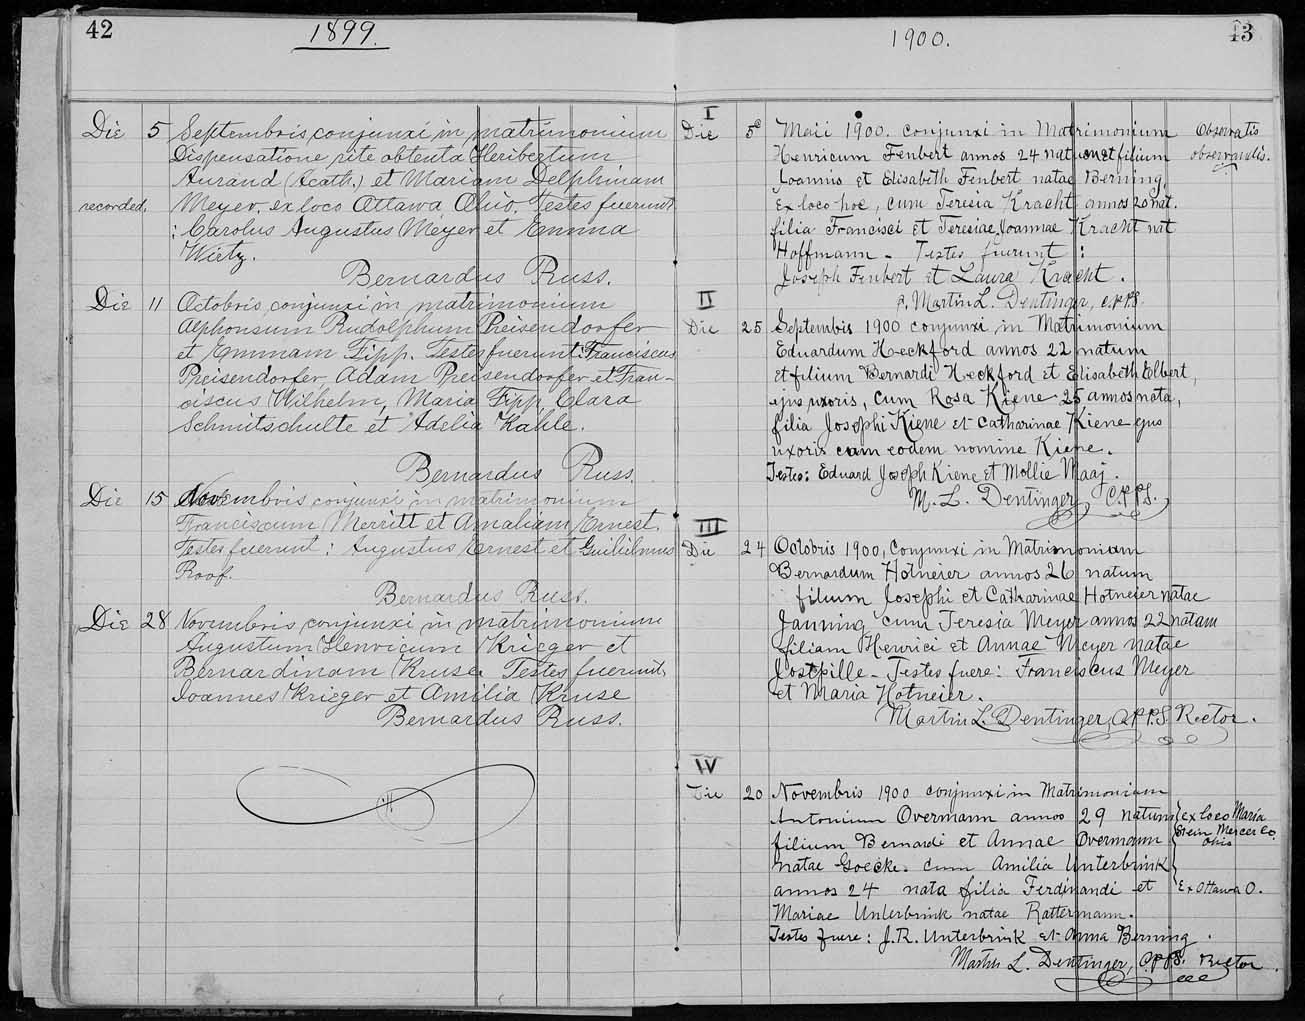 42
1899.
Die 5 Septembris conjunxi in matrimonium
Dispensatione rite obtenta Heribertum
Aurand (Acath.) et Mariam Delphinam
recorded. Meyer. ex loco Ottawa Ohio. Testes fuerunt
: Carolus Augustus Meyer et Emma
Wietz.
Bernardus Russ.
Die 11 Octobris conjunxi in matrimonium
Alphonsum Rudolphum Preisendorfer
et Emmam Fipp. Testes fuerunt: Franciscus
Preisendorfer, Adam Preisendorfer et Fran-
ciscus Wilhelm, Maria Fipp, Clara
Schmitschulte et Adelia Kahle.
Bernardus Russ.
Die 15 Novembris conjunxi in matrimonium
Franciscum Merritt et Amaliam Ernest.
Testes fuerunt: Augustus Ernest et Guilielmus
Roof.
Bernardus Russ.
Die 28 Novembris conjunxi in matrimonium
Augustum Henricum Krieger et
Bernardinam Kruse. Testes fuerunt,
Joannes Krieger et Amilia Kruse
Bernardus Russ.
43
1900.
I
Die 5 Maii 1900. conjunxi in Matrimonium Observatis
Henricum Fenbert annos 24 natum et filium observandis.
Joannis et Elisabeth Fenbert natae Berning,
ex loco hoc, cum Teresia Kracht annos 20 nat.
filia Francisci et Teresiae Joannae Kracht nat
Hoffmann - Testes fuerunt :
Joseph Fenbert et Laura Kracht.
P. Martin L. Dentinger, C.PP.S.
II
Die 25 Septembis 1900 conjunxi in Matrimonium
Eduardum Heckford annos 22 natum
et filium Bernardi Heckford et Elisabeth Elbert,
ejus uxoris, cum Rosa Kiene 25 annos nata,
filia Josephi Kiene et Catharinae Kiene ejus
uxoris cum eodem nomine Kiene.
Testes: Eduard Joseph Kiene et Mollie Maaj.
M. L. Dentinger C.PP.S.
III
Die 24 Octobris 1900, Conjunxi in Matrimonium
Bernardum Hotmeier annos 26 natum
filium Josephi et Catharinae Hotmeier natae
Janning cum Teresia Meyer annos 22 natam
filiam Henrici et Annae Meyer natae
Jostpille - Testes fuere: Franciscus Meyer
et Maria Hotmeier.
Martin L. Dentinger, C.PP.S. Rector.
IV
Die 20 Novembris 1900 conjunxi in Matrimonium
Antonium Overmann annos 29 natum ex loco Maria
Stein Mercer Co.
Ohio
filium Bernardi et Annae Overmann
natae Goecke. cum Amilia Unterbrink
annos 24 nata filia Ferdinandi et Ex Ottawa O.
Mariae Unterbrink natae Rattermann.
Testes fuere: J.R. Unterbrink et Anna Berning.
Martin L. Dentinger, C.PP.S. Rector.